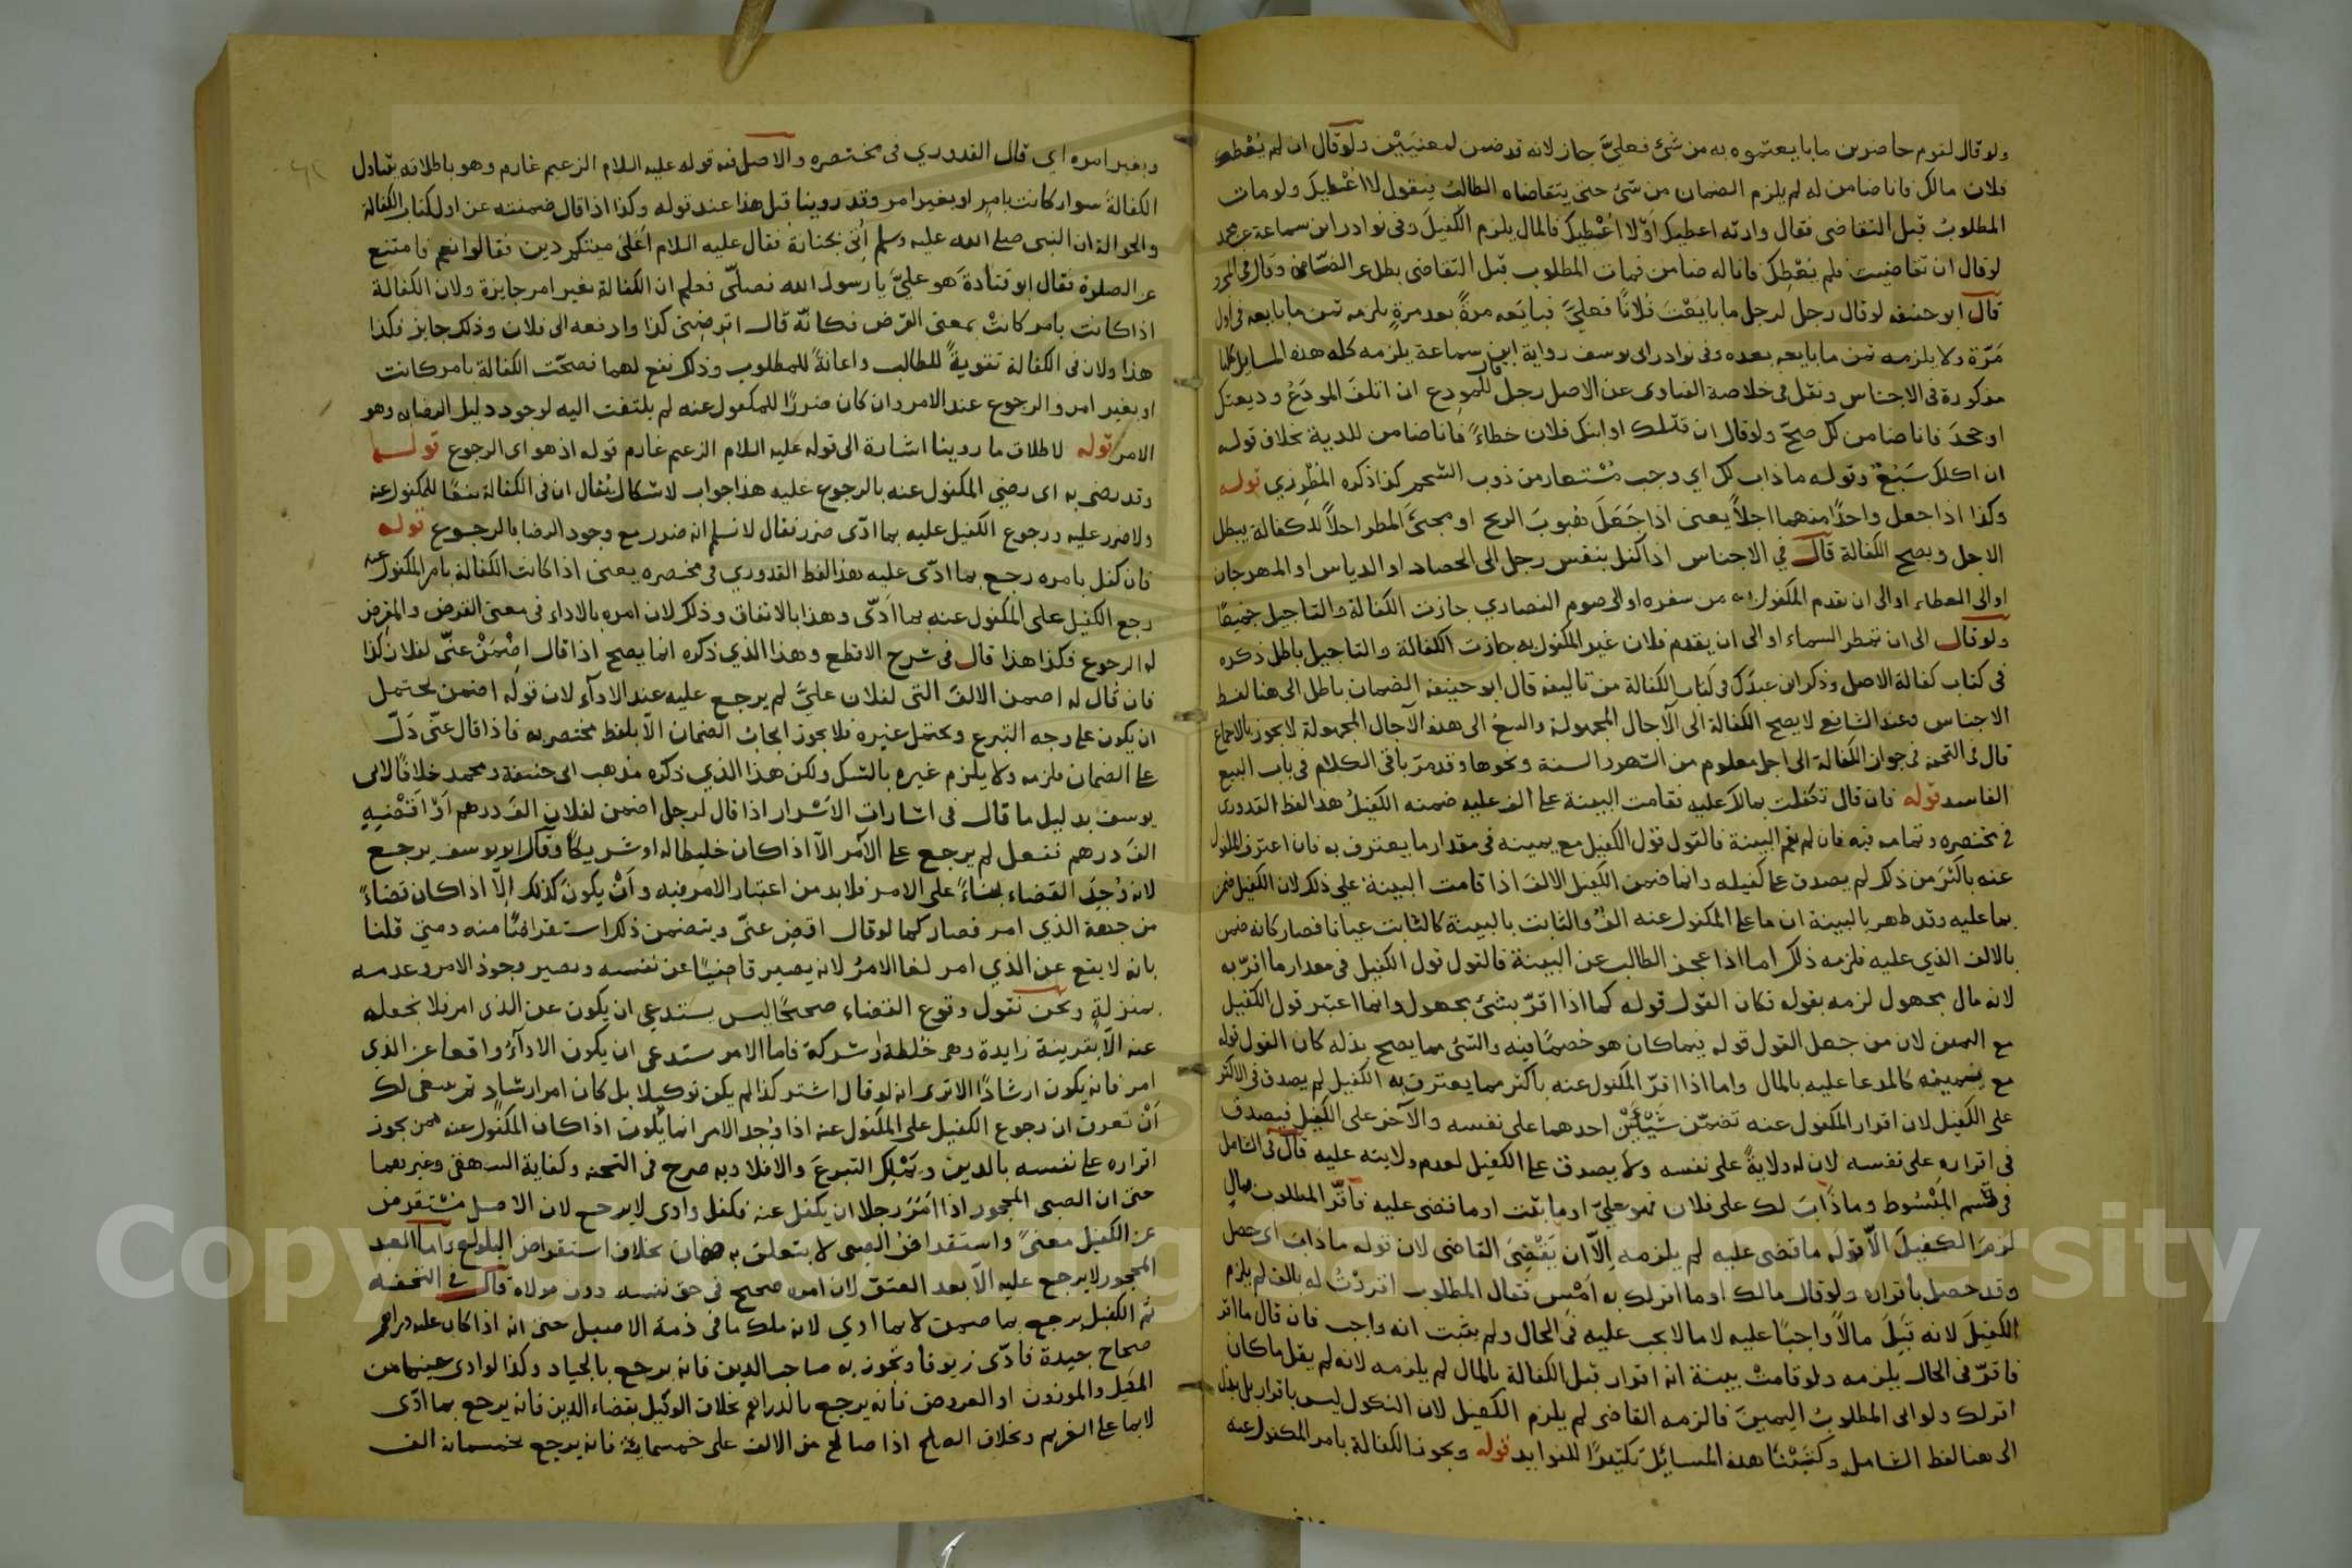 ولو قال لقوم حاضرين ما بايعتموه به من شئ فعليَّ جاز لانه قد ضمن لمعنيين ولو قال ان لم يعطك
فلان مالك فانا ضامن له لم يلزم الضمان من شئ حتى يتقاضاه الطالب فيقول لا اعطيك ولو مات
المطلوب قبل التقاضى فقال وارثه اعطيك اولا اعطيك فالمال يلزم الكفيل وفى نوادر ابن سماعة عن محمد
لو قال ان تقاضيت فلم يعطك فانا له ضامن فمات المطلوب قبل التقاضى بطل الضمان وقال فى المجرد
قال ابو حنيفه لو قال رجل لرجل ما بايعت فلانًا فعليَّ فبايعه مرةً بعد مرةٍ يلزمه ثمن ما بايعه فى اول
مَرّة ولا يلزمه ثمن ما بايعه بعده وفى نوادر ابى يوسف رواية ابن سماعة يلزمه كله هذه المسايل كلها
مذكورة فى الاجناس ونقل فى خلاصة الفتاوى عن الاصل رجل قال للمودِع ان اتلف المودَع وديعتك
او جحد فانا ضامن لك صح ولو قال ان قتلك او ابنك فلان خطاءً فانا ضامن للدية بخلاف قوله
ان اكلك سَبُعٌ وقوله ما ذاب لك اي وجب مُسْتعار من ذوب الشحم كذا ذكره المُطَرِزي قوله
وكذا اذا جعل واحدًا منهما اجلاً يعنى اذا جَعَلَ هبوبَ الريح او مجئَ المطر اجلاً للكفالة يبطل
الاجل ويصح الكفالة قال في الاجناس اذا كفل بنفس رجل الى الحصاد او الدياس او المهرجان
او الى العطاء او الى ان يقدم المكفول به من سفره او الى صوم النصاري جازت الكفالة والتاجيل جميعًا
ولو قال الى ان تمطر السماء او الى ان يقدم فلان غير المكفول به جازت الكفالة والتاجيل باطل ذكره
فى كتاب كفالة الاصل وذكر ابن عبدك فى كتاب الكفالة من تاليفه قال ابو حنيفه الضمان باطل الى هنا لفظ
الاجناس وعند الشافعي لا يصح الكفالة الى الآجال المجهولة والبيع الى هذه الآجال المجهولة لا يجوز بالاجماع
قال فى التحفه فى جواز الكفالة الى اجل معلوم من الشهور السنة ونحوها وقد مرّ باقى الكلام فى باب البيع
الفاسد قوله فان قال تكفلت بما لك عليه فقامت البينة على الف عليه ضمنه الكفيلُ هذا لفظ القدورى
فى مختصره وتمامه فيه فان لم تقم البينة فالقول قول الكفيل مع يمينه فى مقدار ما يعترف به فان اعترف المكفول
عنه باكثَرَ من ذلك لم يصدق على كفيله وانما ضمن الكفيل الالف اذا قامت البينة على ذلك لان الكفيل ضمن
بما عليه وقد ظهر بالبينة ان ما على المكفول عنه الفٌ والثابت بالبينة كالثابت عيانا فصار كانه ضمن
بالالف الذي عليه فلزمه ذلك اما اذا عجز الطالب عن البينة فالقول قول الكفيل فى مقدار ما اقرّ به
لانه مال مجهول لزمه بقوله فكان القول قوله كما اذا اقرّ بشئ مجهول وانما اعتبر قول الكفيل
مع اليمين لان من جعل القول قوله فيما كان هو خصمًا فيه والشئ مما يصح بذله كان القول قوله
مع يمينه كالمدعا عليه بالمال واما اذا اقرّ المكفول عنه باكثر مما يعترف به الكفيل لم يصدق فى الاكثر
على الكفيل لان اقرار المكفول عنه تضمّن شَيْئَيْن احدهما على نفسه والآخر على الكفيل فيصدق
فى اقراره على نفسه لان له ولايةً على نفسه ولا يصدق على الكفيل لعدم ولايته عليه قال فى الشامل
فى قسم المَبْسُوط وما ذابَ لك على فلان فهو عليّ او ما ثبت او ما قضى عليه فاقرّ المطلوب بمالٍ
لزمَ الكفيلَ الّا قولَه ما قضى عليه لم يلزمه اِلّا ان يَقْضِىَ القاضى لان قوله ما ذاب اى حصل
وقد حصل باقراره ولو قال مالك او ما اقر لك به اَمْس فقال المطلوب اقررْتُ له بالف لم يلزم
الكفيلَ لانه قَبِلَ مالاً واجبًا عليه لا ما لا يجب عليه فى الحال ولم يثبت انه واجب فان قال ما اقر
فاقرّ فى الحال يلزمه ولو قامتْ بينة انه اقرار قبل الكفالة بالمال لم يلزمه لانه لم يقل ما كان
اقر لك ولو ابى المطلوبُ اليمينَ فالزمه القاضى لم يلزم الكفيل لان النكول ليس باقرار بل بذل
الى هنا لفظ الشامل وكَتَبْنَا هذه المسائِلَ تكثيرًا للفوايد قوله وتجوز الكفالة بامر المكفول عنه
وبغير امره اي قال القدوري فى مختصره والاصل فيه قوله عليه السلام الزعيم غارم وهو باطلاقه يتناول
الكفالةَ سواء كانت بامرٍ او بغير امر وقد روينا قبل هذا عند قوله وكذا اذا قال ضمنته عن اول كتاب الكفالة
والحوالة ان النبى صلى الله عليه وسلم أُتى بجنازة فقال عليه السلام أعَلى ميتكم دين فقالوا نعم فامتنع
عن الصلوة فقال ابو قتادةَ هو عليَّ يا رسول الله فصلّى فعلم ان الكفالة بغير امر جايزة ولان الكفالة
اذا كانت بامر كانتْ بمعنى القرض فكانّه قال اقرضنى كذا وادفعه الى فلان وذلك جايز فكذا
هذا ولان فى الكفالة تقويةً للطالب واعانةً للمطلوب وذلك نفع لهما فصحّت الكفالة بامر كانت
او بغير امر والرجوع عند الامر وان كان ضررًا للمكفول عنه لم يلتفت اليه لوجود دليل الرضا به وهو
الامر قوله لاطلاق ما روينا اشارة الى قوله عليه السلام الزعيم غارم قوله اذ هو اى الرجوع قوله
وقد رضى به اى رضى المكفول عنه بالرجوع عليه هذا جواب لاشكال يُقال ان فى الكفالة نفعًا للمكفول عنه
ولا ضرر عليه ورجوع الكفيل عليه بما ادّى ضرر فقال لا نسلم انه ضرر مع وجود الرضا بالرجوع قوله
فان كفل بامره رجع بما ادّى عليه هذا لفظ القدوري فى مختصره يعنى اذا كانت الكفالة بامر المكفول عنه
رجع الكفيل على المكفول عنه بما اَدّى وهذا بالاتفاق وذلك لان امره بالاداء فى معنى القرض والمقرض
له الرجوع فكذا هذا قال فى شرح الاقطع وهذا الذي ذكره انما يصح اذا قال اِضْمَنْ عنّى لفلان كذا
فان قال له اضمن الالفَ التى لفلان عليَّ لم يرجع عليه عند الادآء لان قولَه اضمن يحتمل
ان يكون على وجه التبرع ويحتمل غيره فلا يجوز ايجاب الضمان الّا بلفظ مختصر به فاذا قال عنّى دَلّ
على الضمان فلزمه ولا يلزم غيره بالشك ولكن هذا الذي ذكره مذهب ابى حنيفة ومحمد خلافًا لابى
يوسف بدليل ما قال فى اشارات الاَسْرار اذا قال لرجل اضمن لفلان الفَ درهم اَوْ اَقْضِهِ
الفَ درهم ففعل لم يرجع على الآمر الّا اذا كان خليطا له او شريكًا وقال ابو يوسف يرجع
لانه وُجِدَ القضاء بناءً على الامر فلا بد من اعتبار الامر فيه واَنْ يكونَ كذلك اِلّا اذا كان قضاءً
من جهة الذي امر فصار كما لو قال اقضِ عنّى ويتضمن ذلك استقراضًا منه ومتى قلنا
بانه لا يقع عن الذي امر لغا الامرُ لانه يصير قاضيًا عن نفسه ويصير وجود الامر وعدمه
بمنزلةٍ ونحن نقول وقوع القضاء صحيحًا ليس يستدعى ان يكون عن الذى امر فلا نجعله
عنه الّا بقرينة زايدة وهى خُلطة او شركة فاما الامر يستدعى ان يكون الادآءُ واقعا عن الذي
امر فانه يكون ارشادًا الا ترى انه لو قال اشتر كذا لم يكن توكيلا بل كان امر ارشادٍ ثم ينبغى لك
اَنْ تعرف ان رجوع الكفيل على المكفول عنه اذا وُجد الامر انما يكون اذا كان المكفول عنه ممن يجوز
اقراره على نفسه بالدين ويَمْلِكُ التبرعَ والا فلا وبه صرح فى التحفه وكفاية البيهقى وغيرهما
حتى ان الصبى المحجور اذا اَمَرَ رجلا ان يكفل عنه فكفل وادى لا يرجع لان الاصيل مُسْتقرض
عن الكفيل معنىً واستقراض الصبى لا يتعلق به ضمان بخلاف استقراض البالغ واما العبد
المحجور لا يرجع عليه الّا بعد العتق لان امره صحيح فى حق نفسه دون مولاه قال فى التحفه
ثم الكفيل يرجع بما ضمن لا بما ادي لانه ملك ما فى ذمة الاصيل حتى انه اذا كان عليه دراهم
صحاح جيدة فادّى زيوفا وتجوز به صاحب الدين فانه يرجع بالجياد وكذا لو ادى عنها من
المكيل والموزون او العروض فانه يرجع بالدراهم بخلاف الوكيل بقضاء الدين فانه يرجع بما ادّى
لا بما على الغريم وبخلاف الصلح اذا صالح من الالف على خمسماية فانه يرجع بخمسماية الف
Copyright © King Saud University